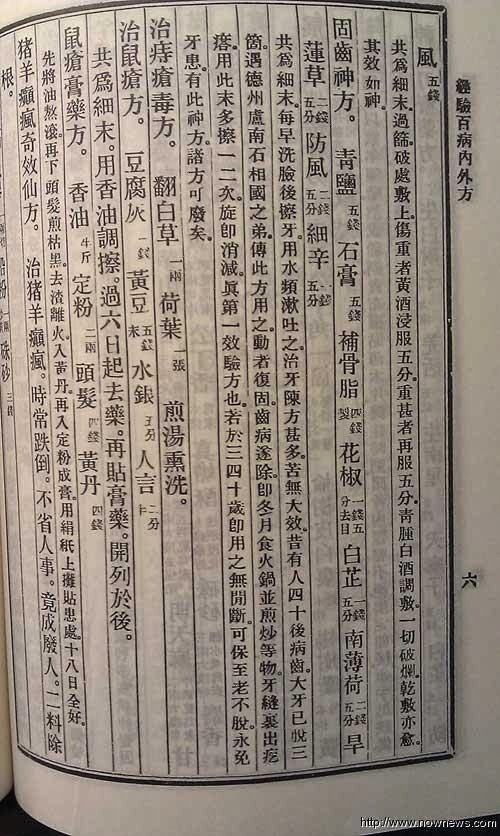 經驗百病內外方
六
風 五錢
共爲細末。過篩。破處敷上。傷重者黃酒浸服五分。重甚者再服五分。靑腫白酒調敷。一切破爛。乾敷亦愈。
其效如神。
固齒神方。 靑鹽 五錢 石膏 五錢 補骨脂 四錢製 花椒 一錢五分去目 白芷 一錢五分 南薄荷 二錢五分 旱
蓮草 二錢五分 防風 二錢五分 細辛 一錢五分
共爲細末。每早洗臉後擦牙。用水頻漱吐之。治牙陳方甚多。苦無大效。昔有人四十後病齒。大牙已脫三
箇。遇德州盧南石相國之弟。傳此方用之。動者復固。齒病遂除。卽冬月食火鍋並煎炒等物。牙縫裏出疙
瘩。用此末多擦一二次。旋卽消減。眞第一效驗方也。若於三四十歲卽用之無間斷。可保至老不脫。永免
牙患。有此神方。諸方可廢矣。
治痔瘡毒方。 翻白草 一兩 荷葉 一張 煎湯熏洗。
治鼠瘡方。 豆腐灰 錢 黃豆 五錢末 水銀 五分 人言 二分
共爲細末。用香油調擦。過六日起去藥。再貼膏藥。開列於後。
鼠瘡膏藥方。 香油 半斤 定粉 二兩 頭髮 四錢 黃丹 四錢
先將油熬滾。再下頭髮煎枯黑。去渣離火。入黃丹。再入定粉成膏。用絹紙上攤貼患處。十八日全好。
猪羊癲瘋奇效仙方。 治猪羊癲瘋。時常跌倒。不省人事。竟成廢人。二料除
根。 鉛粉 硃砂 三錢
http://www.nownews.com